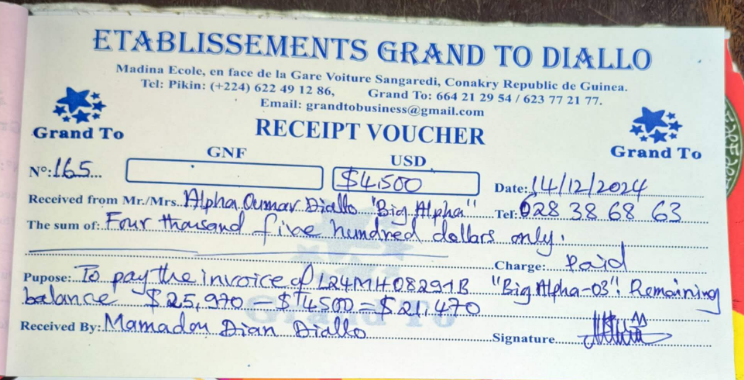 ETABLISSEMENTS GRAND TO DIALLO
Madina Ecole, en face de la Gare Voiture Sangaredi, Conakry Republic de Guinea.
Tel: Pikin: (+224) 622 49 12 86, Grand To: 664 21 29 54 / 623 77 21 77.
Email: grandtobusiness@gmail.com
Grand To RECEIPT VOUCHER Grand To
GNF USD
Nº: 165 $4,500 Date: 14/12/2024
Received from Mr./Mrs. Alpha Oumar Diallo "Big Alpha" Tel: 028 38 68 63
The sum of: Four thousand five hundred dollars only.
Charge: Paid
Pupose: To pay the invoice of L24MH0829-1B "Big Alpha-03". Remaining
balance $25,970 - $4500 = $21,470
Received By: Mamadou Dian Diallo Signature
Grand To